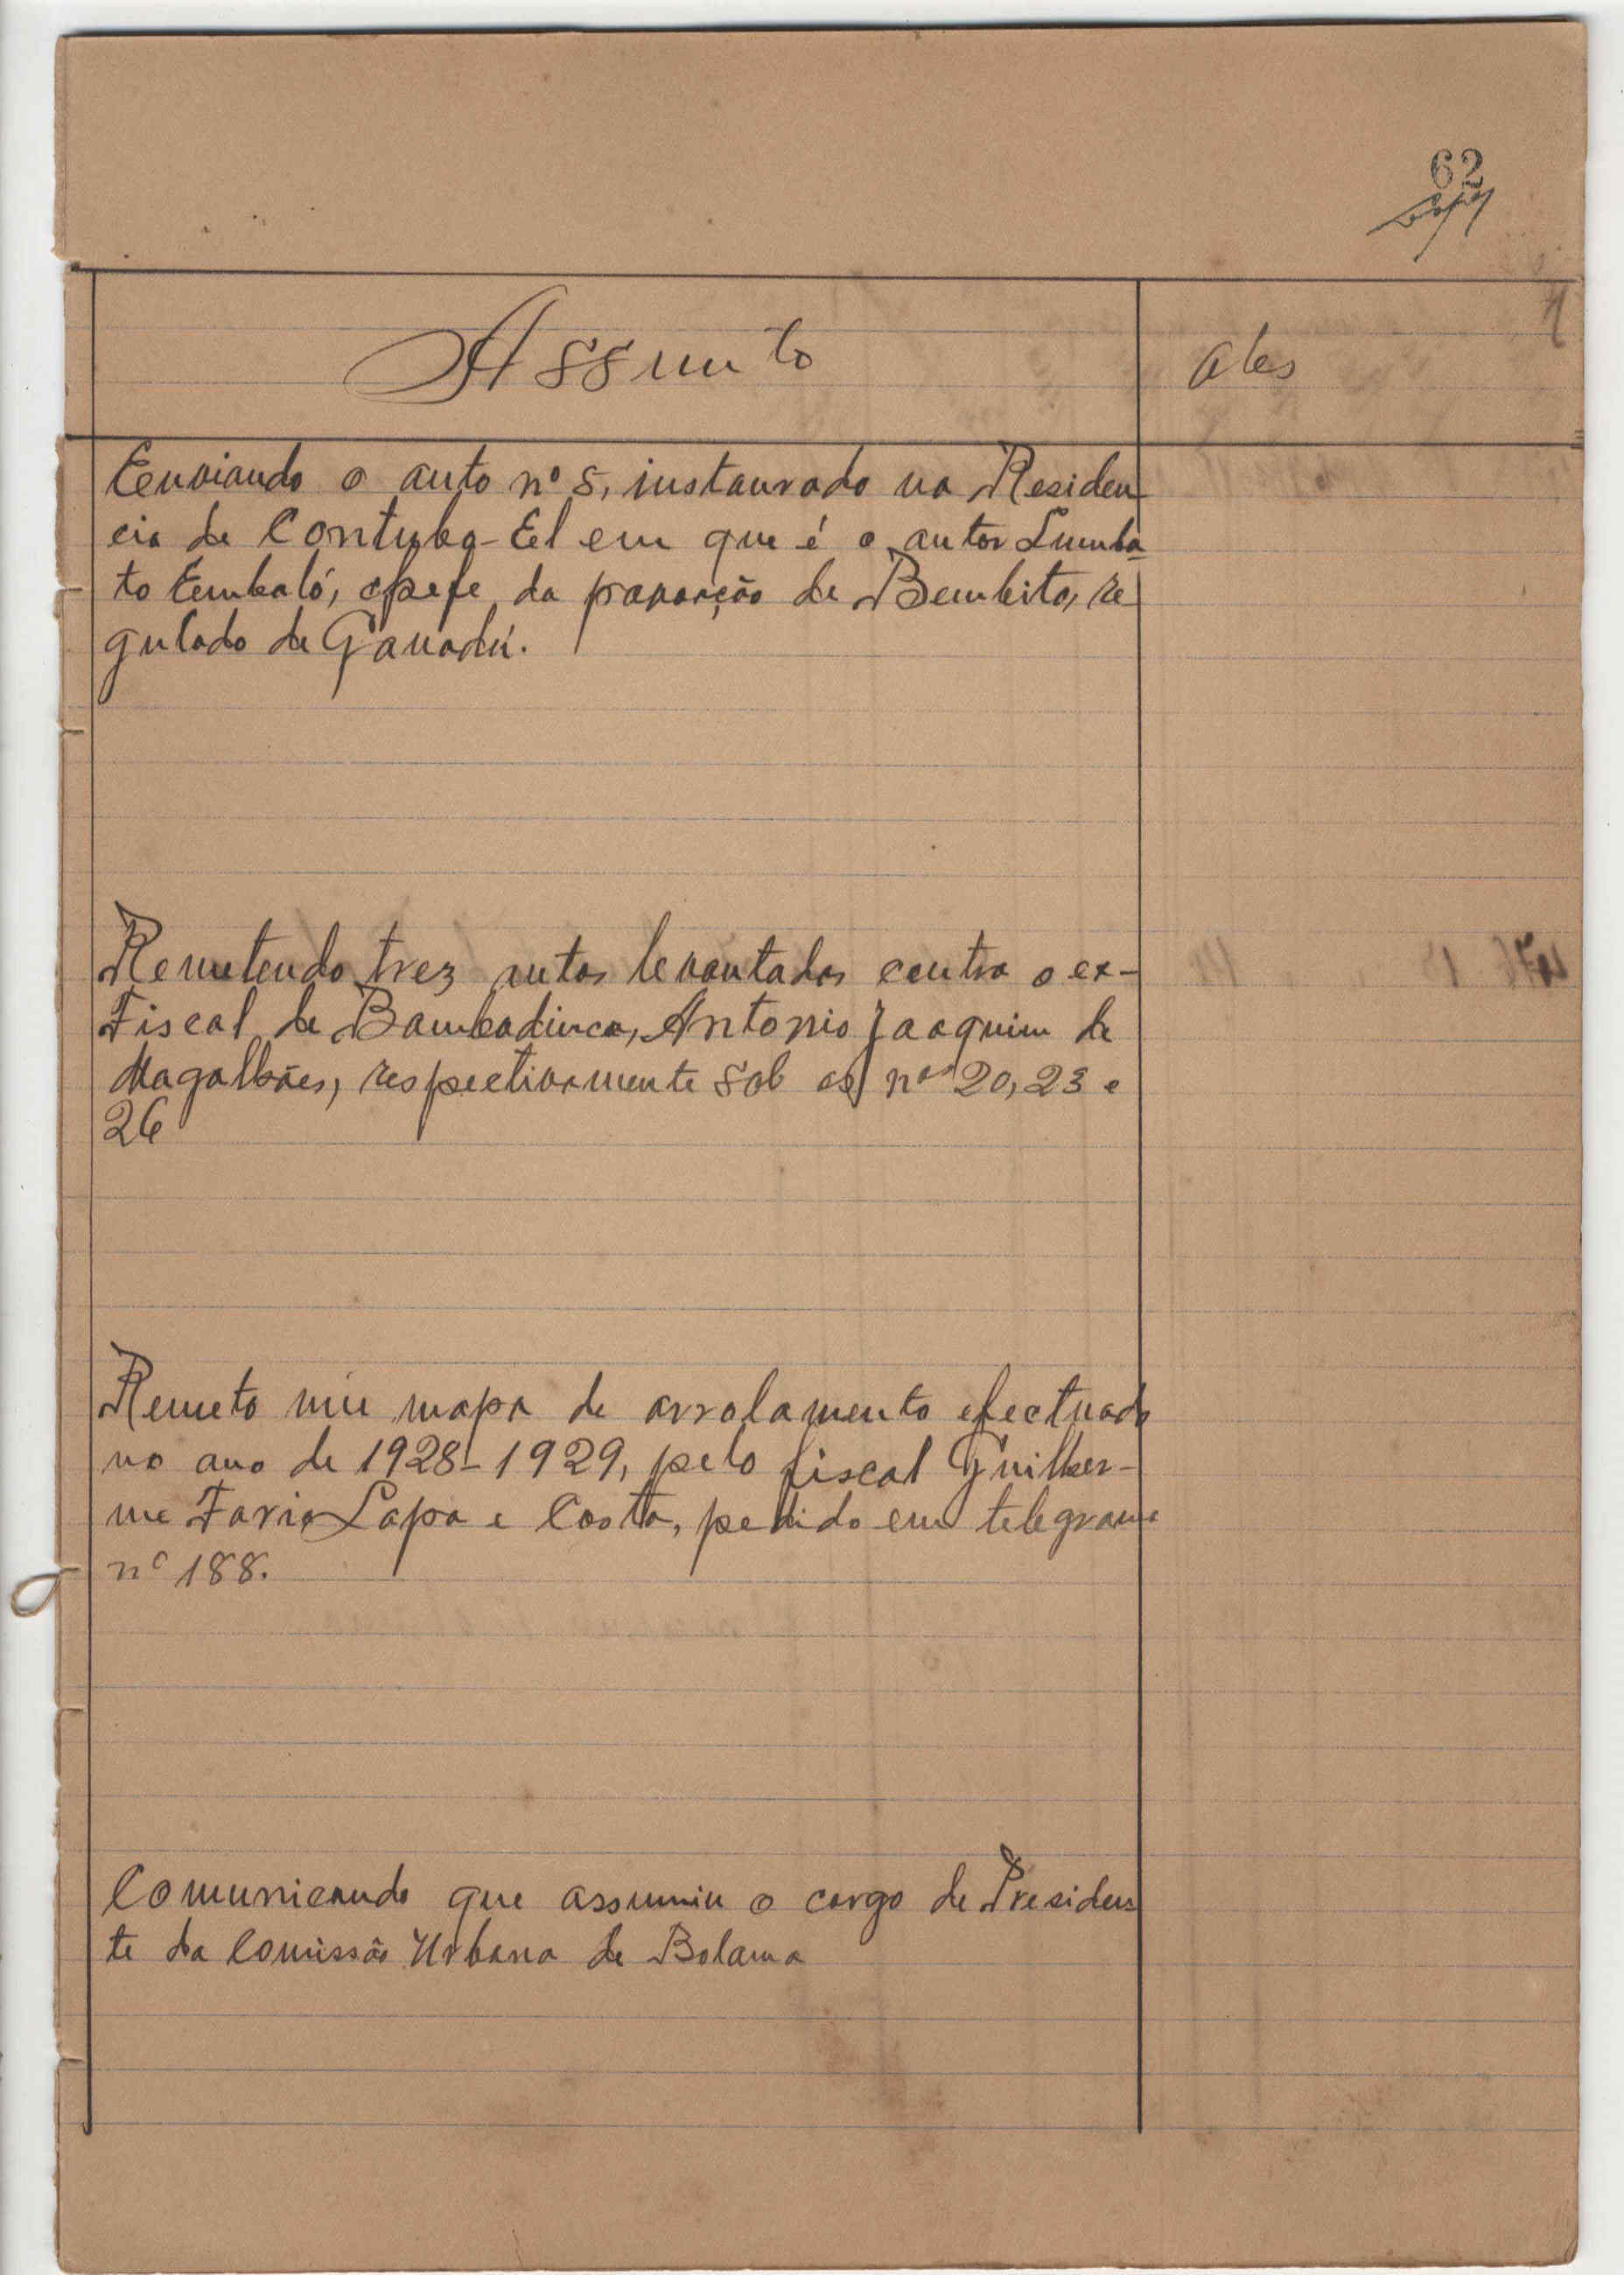 62
Assunto
Obs
Enviando o auto nº 5, instaurado na Residen
cia de Contuba-El em que é o autor Sumba
to Embaló, chefe da povoação de Bembita, re
gulado de Ganadú.
Remetendo trez autos levantados contra o ex-
Fiscal de Bambadinca, Antonio Joaquim de
Magalhães, respectivamente sob os nos 20, 23 e
26
Remeto um mapa de arrolamento efectuado
no ano de 1928-1929, pelo fiscal Guilher-
me Faria Lapa e Costa, pedido em telegrama
nº 188.
Comunicando que assumiu o cargo de Presiden
te da Comissão Urbana de Bolama